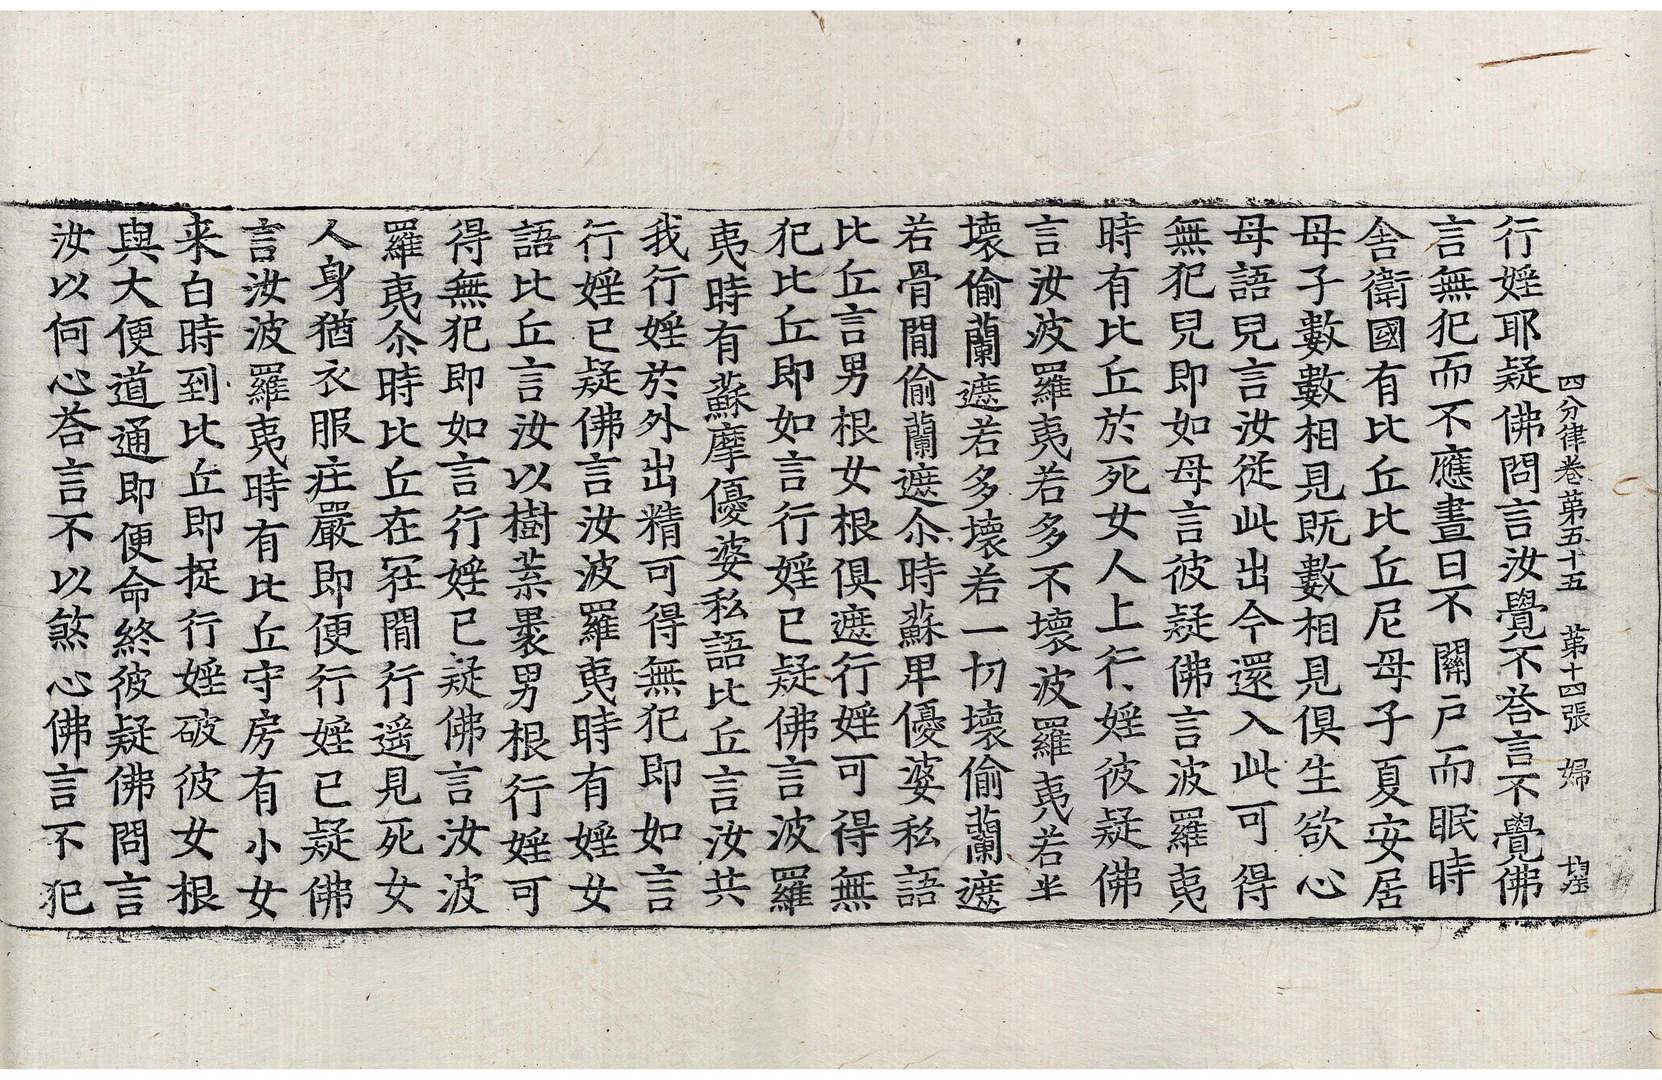 四分律卷第五十五 第十四張 婦
行婬耶疑佛問言汝覺不荅言不覺佛
言無犯而不應晝日不關戶而眠時
舍衛國有比丘比丘尼母子夏安居
母子數數相見旣數相見俱生欲心
母語兒言汝從此出今還入此可得
無犯兒即如母言彼疑佛言波羅夷
時有比丘於死女人上行婬彼疑佛
言汝波羅夷若多不壞波羅夷若半
壞偷蘭遮若多壞若一切壞偷蘭遮
若骨閒偷蘭遮尒時蘇卑優婆私語
比丘言男根女根俱遮行婬可得無
犯比丘即如言行婬已疑佛言波羅
夷時有蘇摩優婆私語比丘言汝共
我行婬於外出精可得無犯即如言
行婬已疑佛言汝波羅夷時有婬女
語比丘言汝以樹葉褁男根行婬可
得無犯即如言行婬已疑佛言汝波
羅夷尒時比丘在冢閒行遥見死女
人身猶衣服庄嚴即便行婬已疑佛
言汝波羅夷時有比丘守房有小女
来白時到比丘即捉行婬破彼女根
與大便道通即便命終彼疑佛問言
汝以何心荅言不以煞心佛言不犯